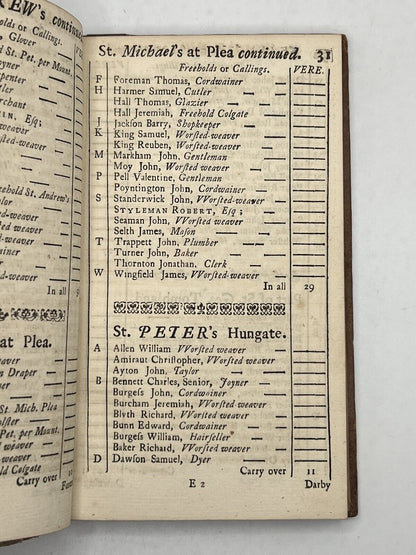 REW's continued
Glover
St. Pet. per Mount.
Carpenter
chant
IN, Esq;
eaver
ehold St. Andrew's
ted-weaver
ed-weaver
In all
at Plea.
n Draper
St. Mich. Plea
et. per Mount,
-weaver
old Colgate
Carry over
St. Michael's at Plea continued. 31
Freeholds or Callings. VERE.
F Foreman Thomas, Cordwainer
H Harmer Samuel, Cutler
Hall Thomas, Glazier
Hall Jeremiah, Freehold Colgate
J Jackson Barry, Shopkeeper
K King Samuel, Worsted-weaver
King Reuben, Worsted-weaver
M Markham John, Gentleman
Moy John, Worsted-weaver
P Pell Valentine, Gentleman
Poyntington John, Cordwainer
S Standerwick John, Worsted-weaver
STYLEMAN ROBERT, Esq;
Seaman John, Worsted-weaver
Selth James, Mason
T Trappett John, Plumber
Turner John, Baker
Thornton Jonathan, Clerk
W Wingfield James, Worsted-weaver
In all 29
St. PETER's Hungate.
A Allen William Worsted weaver
Amiraut Christopher, Worsted weaver
Ayton John, Taylor
B Bennett Charles, Senior, Joyner
Burgess John, Cordwainer
Burcham Jeremiah, Worsted-weaver
Blyth Richard, Worsted-weaver
Bunn Edward, Cordwainer
Burgess William, Hairseller
Baker Richard, Worsted-weaver
D Dawson Samuel, Dyer
Carry over 11
E 2 Darby